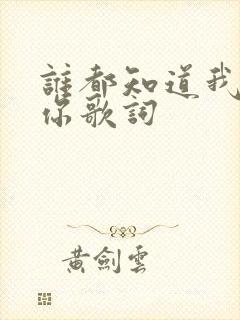 誰都知道我
你歌詞
黃劍雲